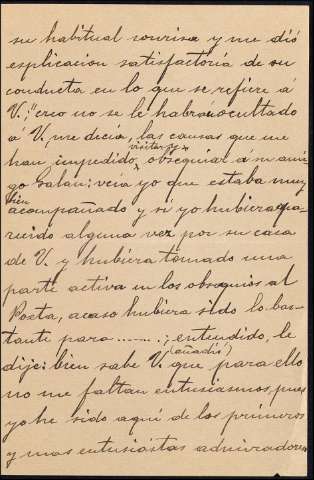 su habitual sonrisa y me dió
esplicacion satisfactoria de su
conducta en lo que se refiere á
V.; "creo no se le habrán ocultado
á V, me decia, las causas que me
han impedido, visitar y obsequiar á mi ami-
go Galan: veia yo que estaba muy
bien acompañado y si yo hubiera apa-
recido alguna vez por su casa
de V. y hubiera tomado una
parte activa en los obsequios al
Poeta, acaso hubiera sido lo bas-
tante para ........; entendido, le
dije: bien sabe V. (añadió) que para ello
no me faltan entusiasmos, pues
yo he sido aquí de los primeros
y mas entusiastas admiradores